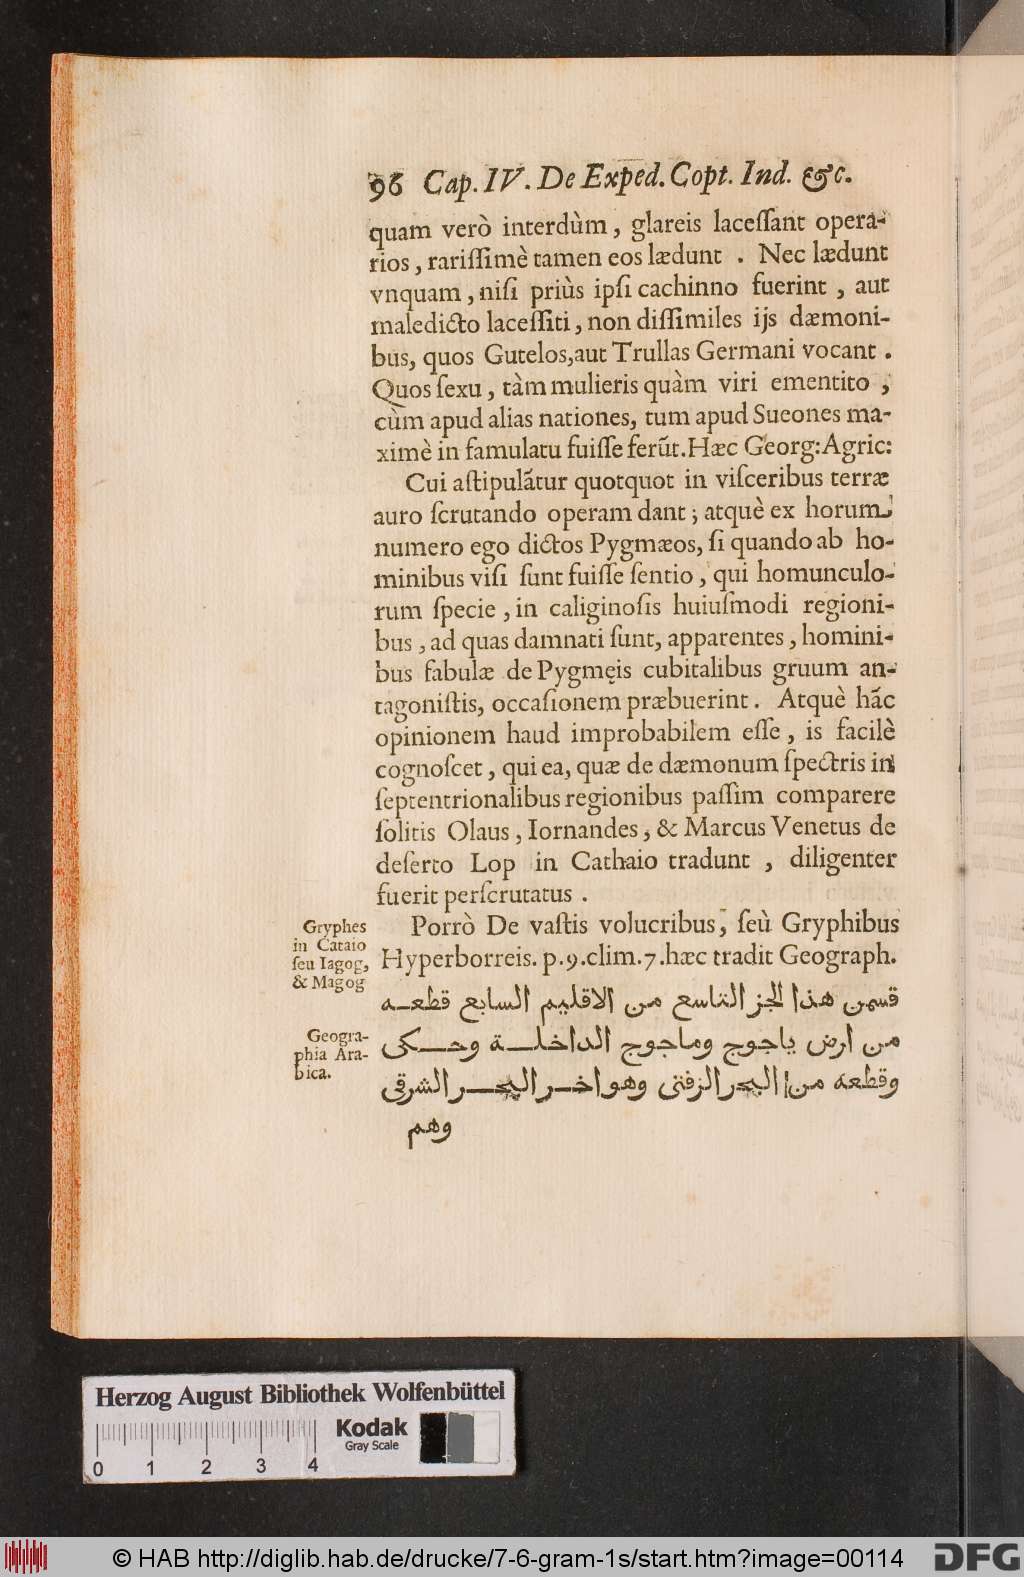 96 Cap. IV. De Exped. Copt. Ind. &c.
quam verò interdùm, glareis laceſſant opera-
rios, rariſſimè tamen eos lædunt. Nec lædunt
vnquam, niſi priùs ipſi cachinno fuerint, aut
maledicto laceſſiti, non diſſimiles ijs dæmoni-
bus, quos Gutelos,aut Trullas Germani vocant.
Quos ſexu, tàm mulieris quàm viri ementito,
cùm apud alias nationes, tum apud Sueones ma-
ximè in famulatu fuiſſe ferūt. Hæc Georg: Agric:
Cui aſtipulātur quotquot in viſceribus terræ
auro ſcrutando operam dant; atquè ex horum
numero ego dictos Pygmæos, ſi quando ab ho-
minibus viſi ſunt fuiſſe ſentio, qui homunculo-
rum ſpecie, in caliginoſis huiuſmodi regioni-
bus, ad quas damnati ſunt, apparentes, homini-
bus fabulæ de Pygmęis cubitalibus gruum an-
tagoniſtis, occaſionem præbuerint. Atquè hāc
opinionem haud improbabilem eſſe, is facilè
cognoſcet, qui ea, quæ de dæmonum ſpectris in
ſeptentrionalibus regionibus paſſim comparere
ſolitis Olaus, Iornandes, & Marcus Venetus de
deſerto Lop in Cathaio tradunt, diligenter
fuerit perſcrutatus.
Gryphes
in Cataio
ſeu Iagog,
& Magog
Porrò De vaſtis volucribus, ſeù Gryphibus
Hyperborreis. p.9.clim.7.hæc tradit Geograph.
Geogra-
phia Ara-
bica.
قسمن هذا الجز التاسع من الاقليم السابع قطعـه
من ارض ياجوج وماجوج الداخلـة وحـكى
وقطعه من البحر الزفتى وهو اخـر البحـر الشرقى
وهم
Herzog August Bibliothek Wolfenbüttel
Kodak
Gray Scale
0 1 2 3 4
© HAB http://diglib.hab.de/drucke/7-6-gram-1s/start.htm?image=00114
DFG